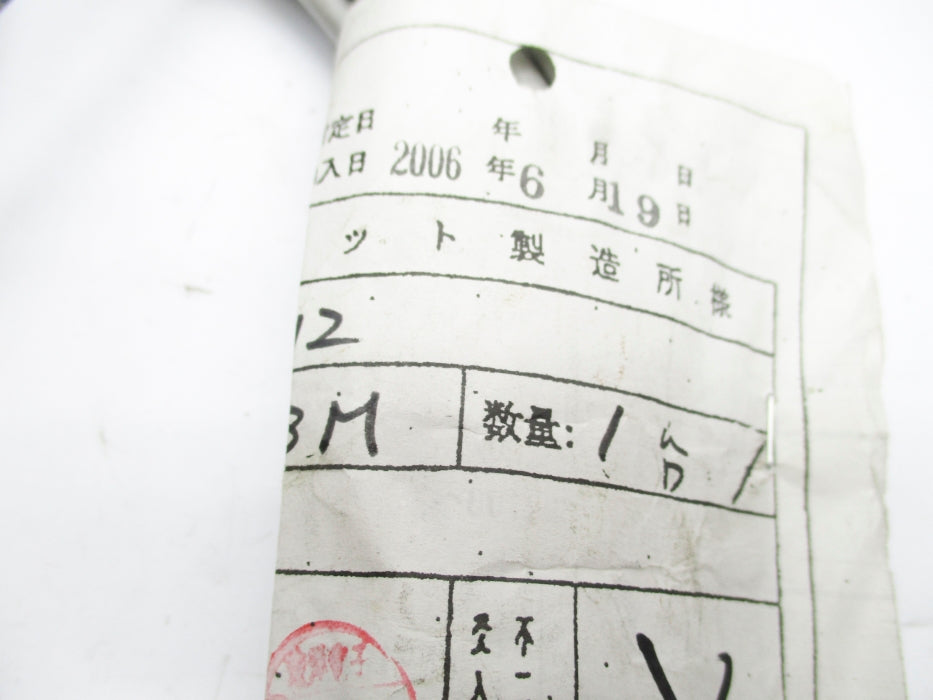 定日 年 月 日
入日 2006 年 6 月 19 日
ット製造所様
12
3M 数量: 1台 /
不